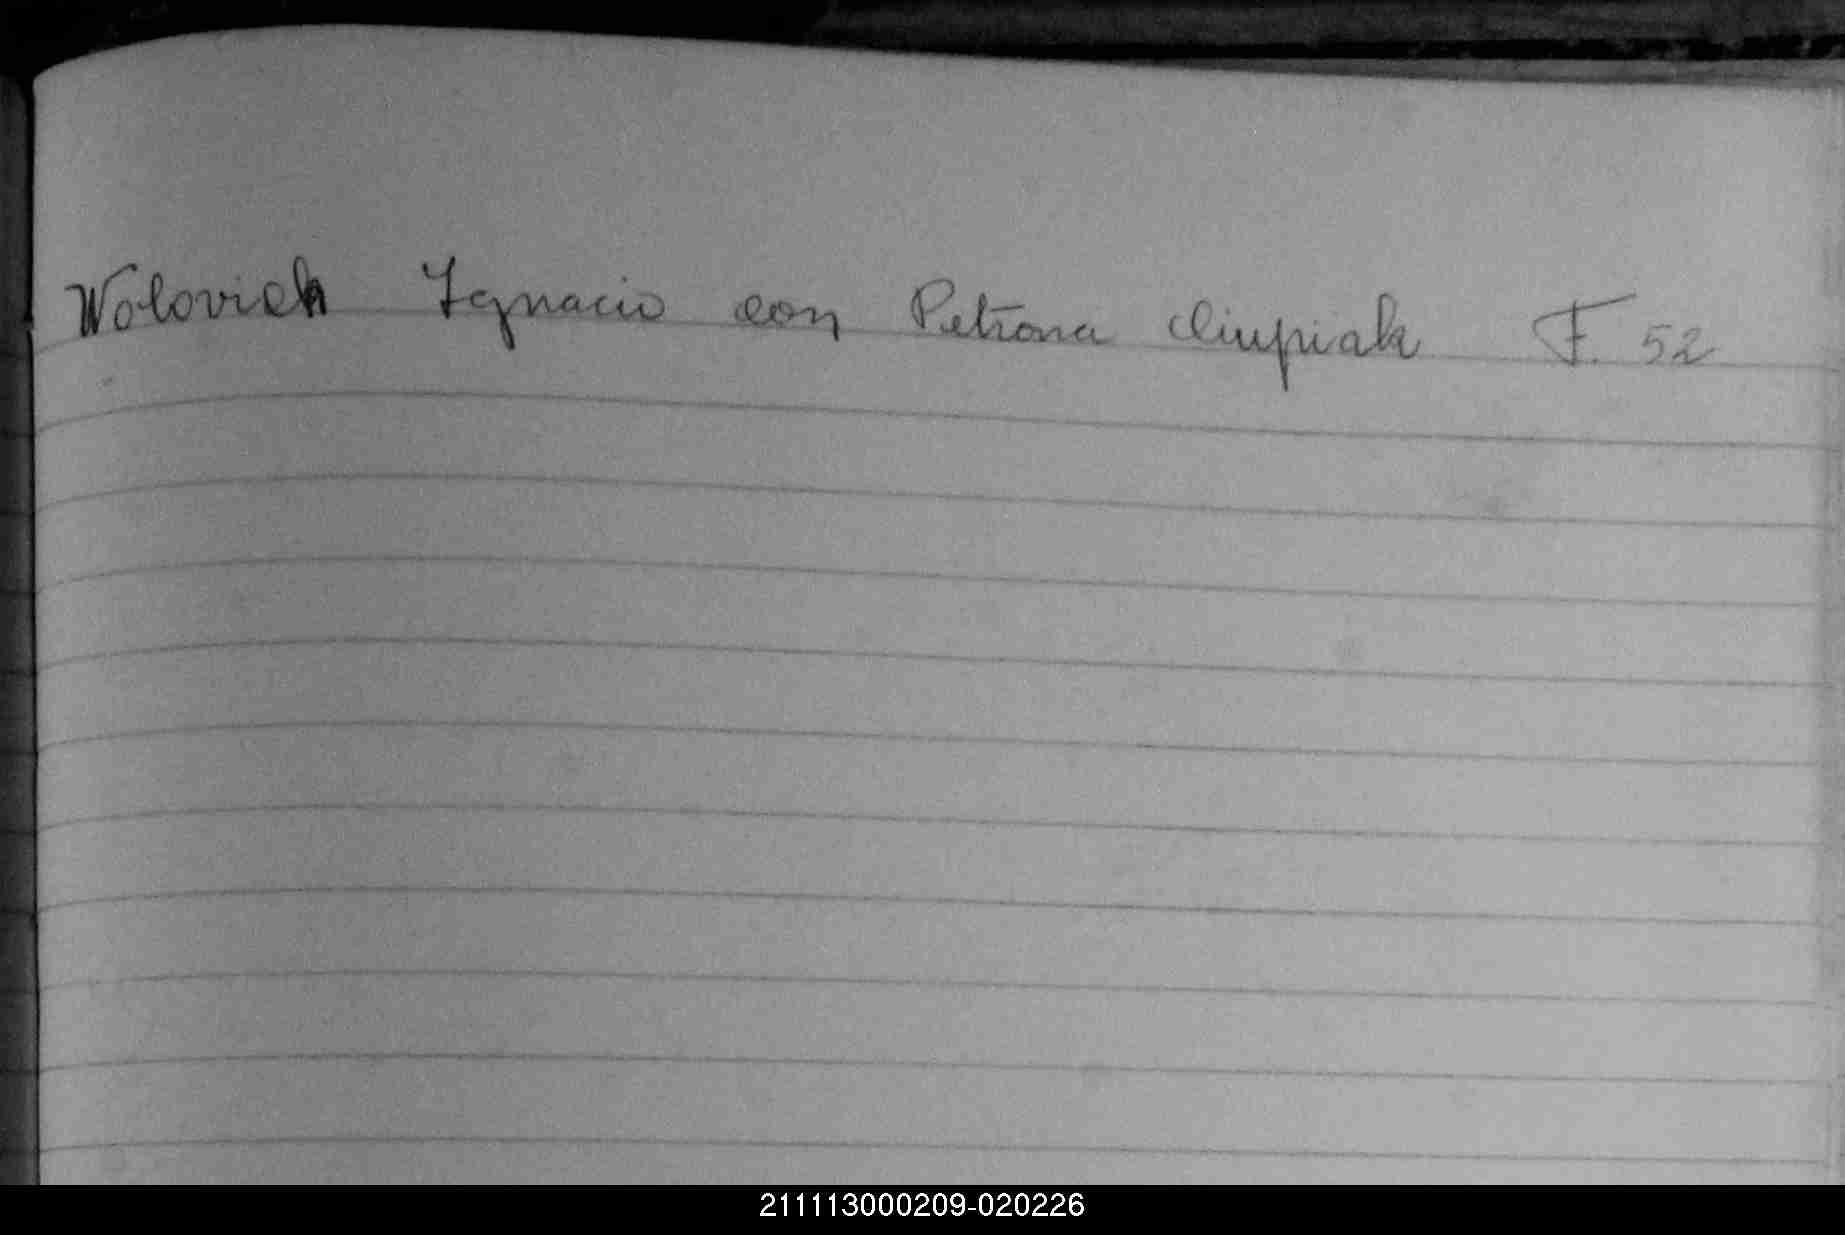 Wolovich Ignacio con Petrona Ciupiak F. 52
211113000209-020226